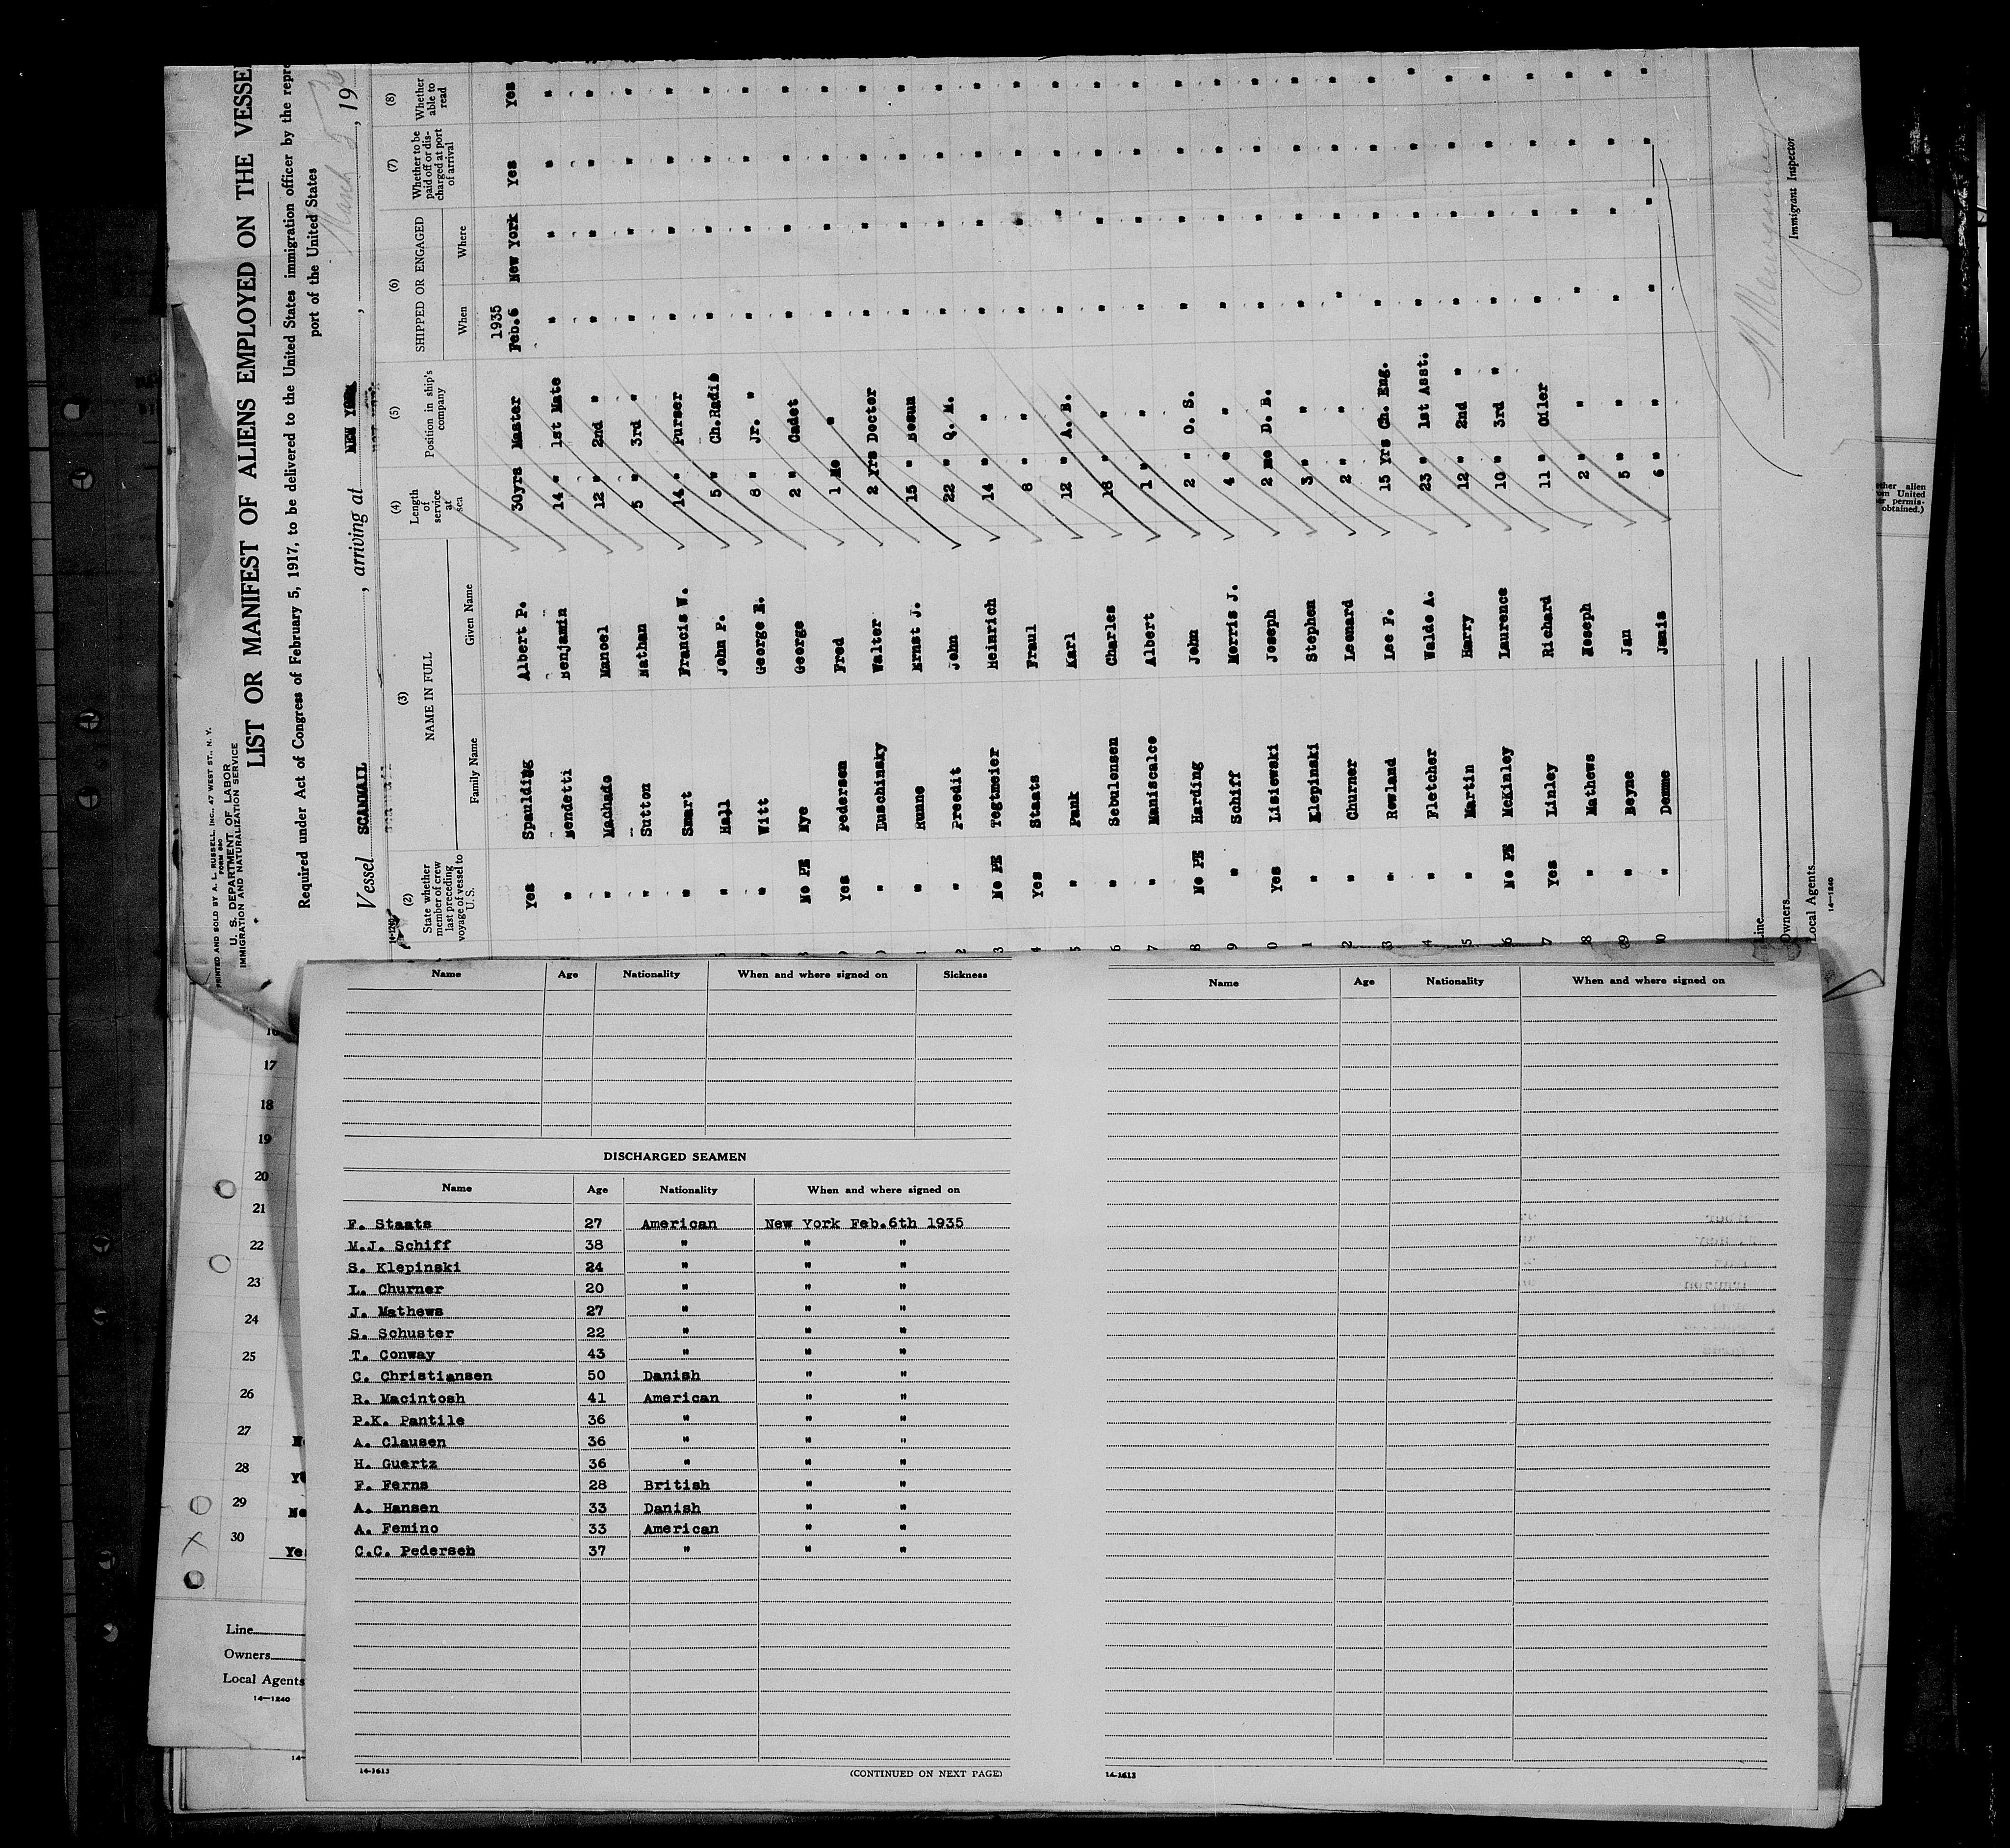 PRINTED AND SOLD BY A. L. RUSSELL, INC., 47 WEST ST., N. Y.
FORM 680
U. S. DEPARTMENT OF LABOR
IMMIGRATION AND NATURALIZATION SERVICE
LIST OR MANIFEST OF ALIENS EMPLOYED ON THE VESSEL
Required under Act of Congress of February 5, 1917, to be delivered to the United States immigration officer by the repre
port of the United States
Vessel SCANMAIL, arriving at NEW YORK, March 5, 19
14-1240
(2) (3) (4) (5) (6) (7) (8)
State whether member of crew last preceding voyage of vessel to U. S.
NAME IN FULL
Family Name Given Name
Length of service at sea
Position in ship's company
SHIPPED OR ENGAGED
When Where
Whether to be paid off or discharged at port of arrival
Whether able to read
1935
Yes Spaulding Albert P. 30yrs Master Feb.6 New York Yes Yes
" Bendetti Benjamin 14 " 1st Mate " " " "
" Machado Manoel 12 " 2nd " " " " "
" Sutton Nathan 5 " 3rd " " " " "
" Smart Francis W. 14 " Purser " " " "
" Hall John P. 5 " Ch.Radio " " " "
" Witt George E. 8 " Jr. " " " " "
No PE Nye George 2 " Cadet " " " "
Yes Pedersen Fred 1 Mo " " " " "
" Luschinsky Walter 2 yrs Doctor " " " "
" Runne Ernst J. 15 " Bosun " " " "
" Preedit John 22 " Q. M. " " " "
3 No PE Tegtmeier Heinrich 14 " " " " " "
4 Yes Staats Fraul 8 " " " " " "
5 " Pank Karl 12 " A. B. " " " "
6 " Sebulonsen Charles 18 " " " " " "
7 " Maniscalco Albert 1 " " " " " "
8 No PE Harding John 2 " O. S. " " " "
9 " Schiff Morris J. 4 " " " " " "
0 Yes Lisiewski Joseph 2 mo D. B. " " " "
1 " Klepinski Stephen 3 " " " " " "
2 " Churner Leonard 2 " " " " " "
3 " Rowland Lee F. 15 yrs Ch. Eng. " " " "
4 " Fletcher Waldo A. 23 " 1st Asst. " " " "
5 " Martin Harry 12 " 2nd " " " " "
6 No PE McKinley Laurence 10 " 3rd " " " " "
7 Yes Linley Richard 11 " Oiler " " " "
8 " Mathews Joseph 2 " " " " " "
9 " Beyne Jan 5 " " " " " "
0 " Domme Janis 6 " " " " " "
Line
Owners
Local Agents
14-1240
Immigrant Inspector
ether alien
om United
er permis-
obtained.)
Name Age Nationality When and where signed on Sickness
DISCHARGED SEAMEN
Name Age Nationality When and where signed on
F. Staats 27 American New York Feb.6th 1935
M.J. Schiff 38 " " "
S. Klepinski 24 " " "
L. Churner 20 " " "
J. Mathews 27 " " "
S. Schuster 22 " " "
T. Conway 43 " " "
C. Christiansen 50 Danish " "
R. Macintosh 41 American " "
P.K. Pantile 36 " " "
A. Clausen 36 " " "
H. Guertz 36 " " "
F. Ferns 28 British " "
A. Hansen 33 Danish " "
A. Femino 33 American " "
C.C. Pedersen 37 " " "
14-1613
(CONTINUED ON NEXT PAGE)
Name Age Nationality When and where signed on
14-1613
16
17
18
19
20
21
22
23
24
25
26
27
28
29
30
Yes
Line
Owners
Local Agents
14-1240